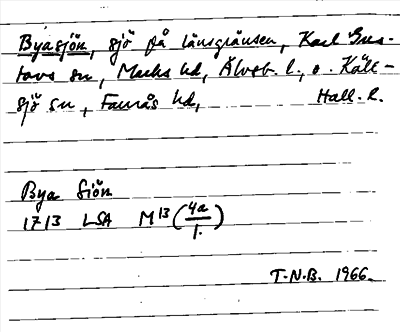 Byasjön, sjö på länsgränsen, Karl Gus-
tavs sn, Marks hd, Älvsb. l., o. Käll-
sjö sn, Faurås hd, Hall. l.
Bya Siön
1713 LSA M13 (4a/1.)
T.N.B. 1966.